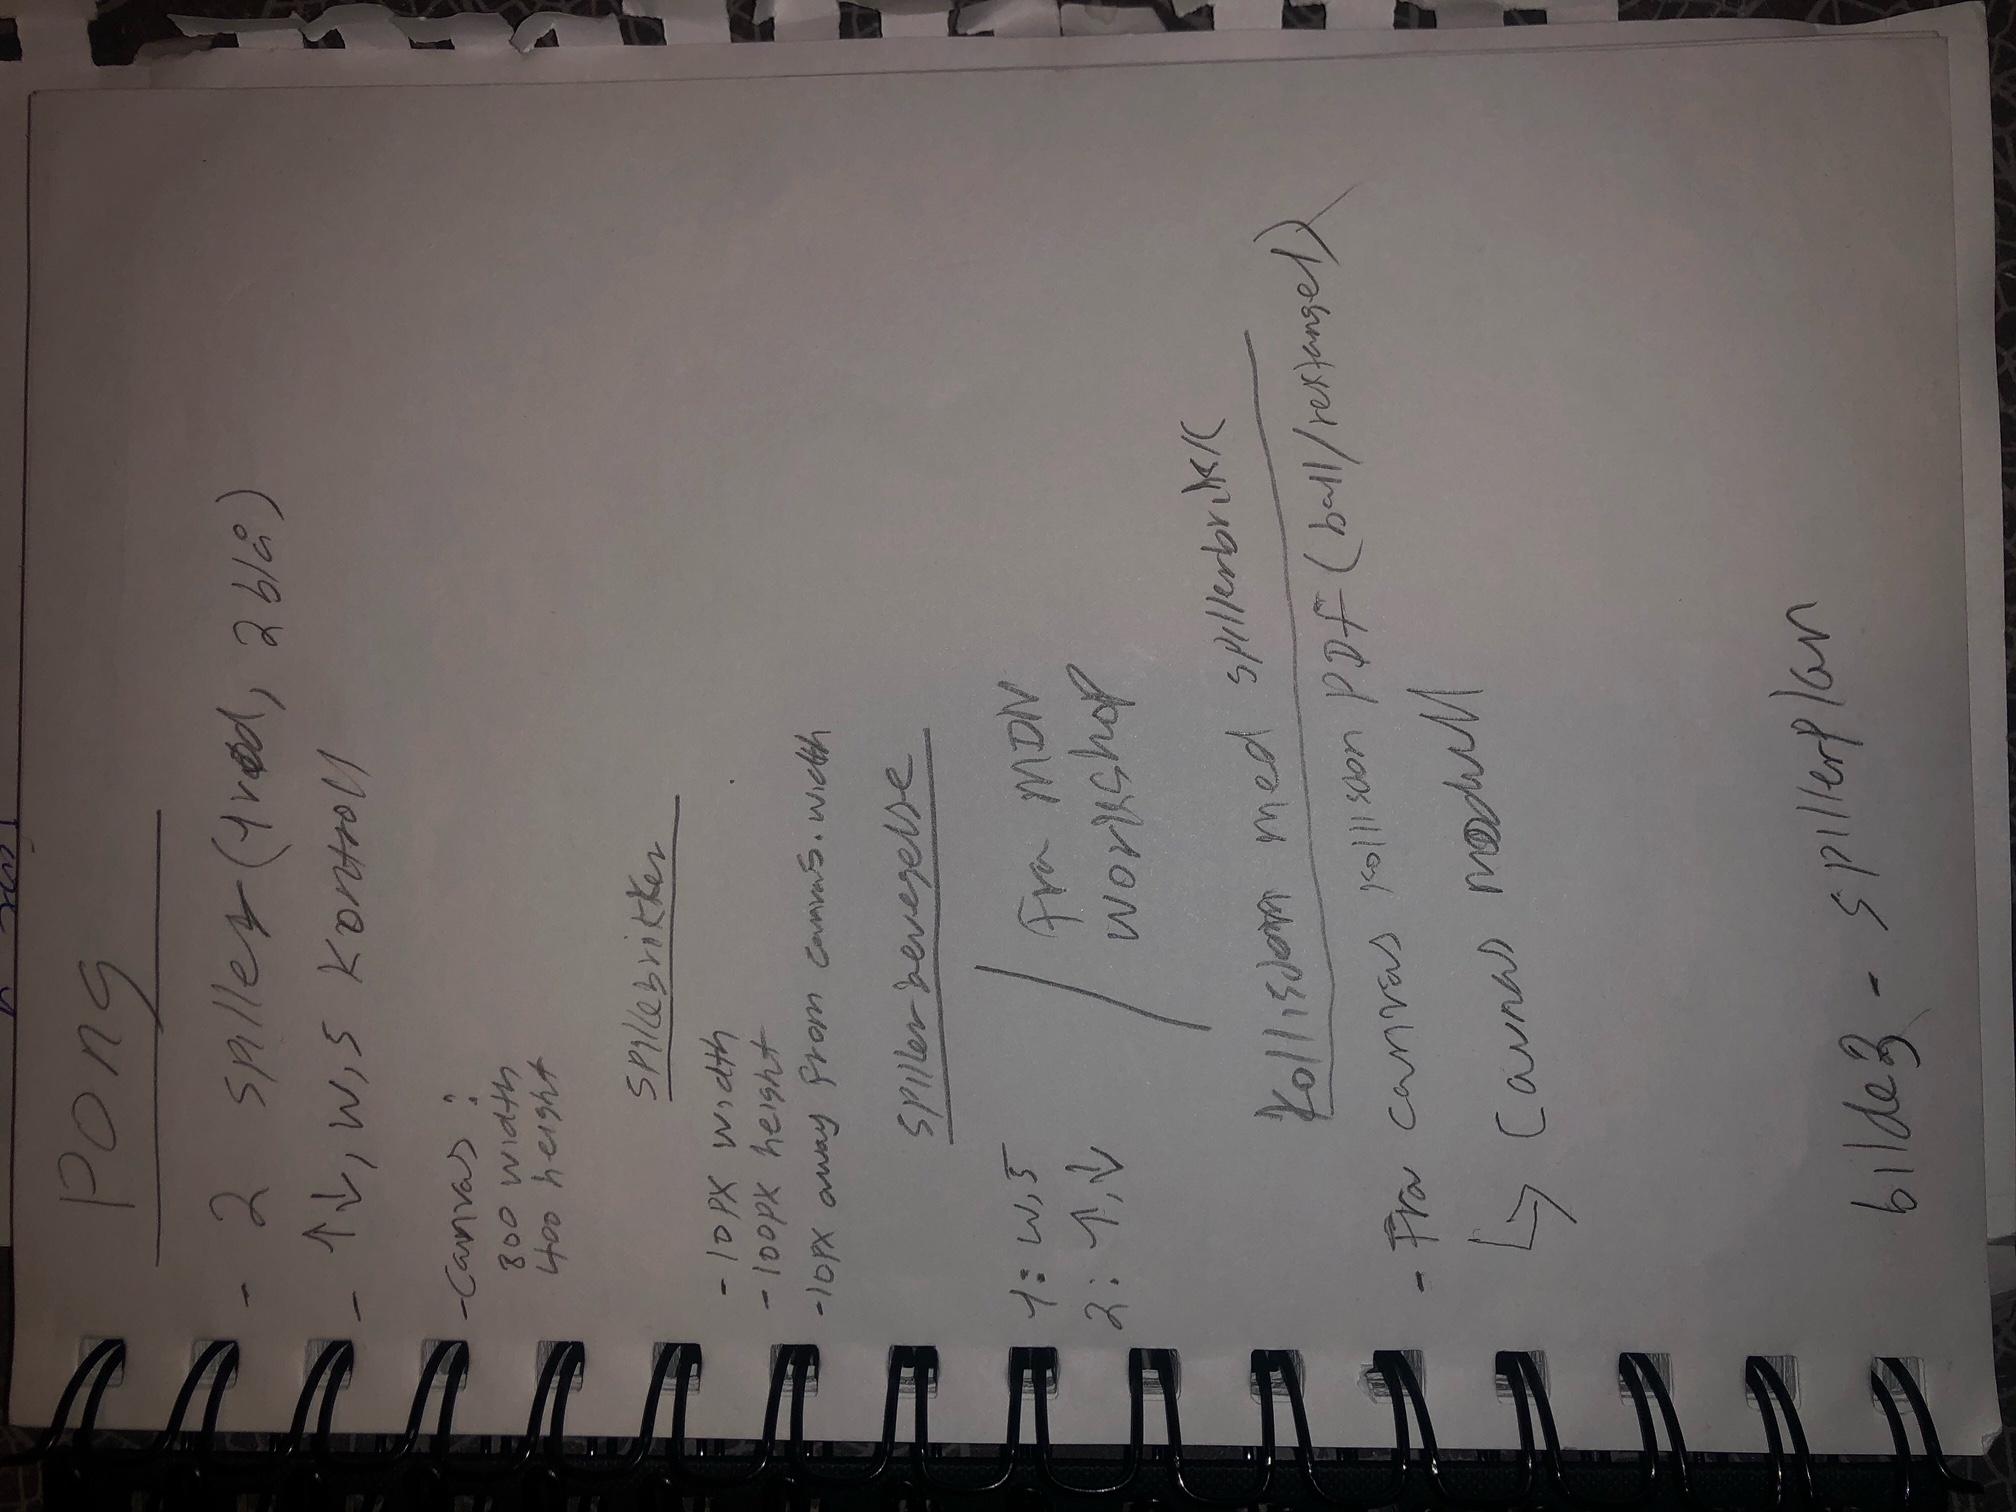 Pong
- 2 spiller (1 rød, 2 blå)
- ↑↓, W, S Kontroll
- Canvas :
800 width
400 height
Spillebrikker
- 10 PX width
- 100PX height
- 10PX away from canvas.width
Spillerbevegelse
1: W, S / Fra MDN
2: ↑, ↓ workshop
Kollisjon med spillerbrikk
- Fra canvas kollisoon PDF (ball/rektangel)
↳ Canvas modull
bilde 3 - spillerplan